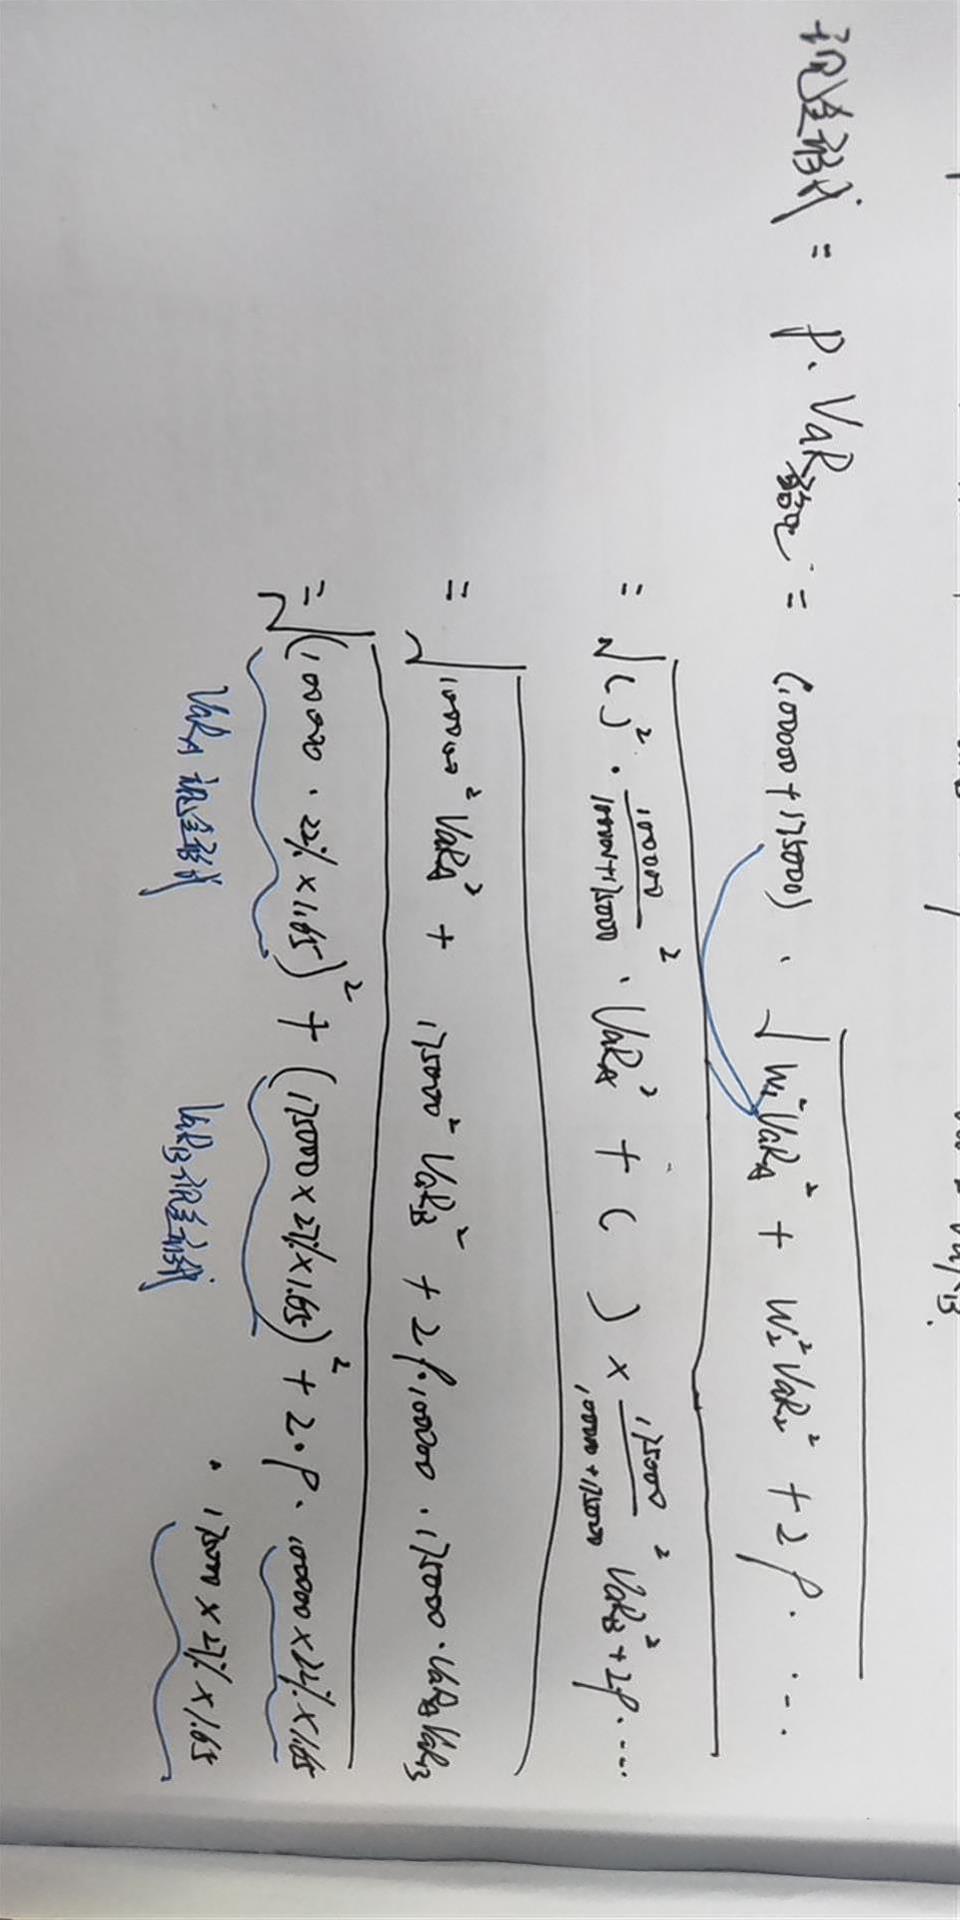 现金形式 = P. VaR百分比 = (100000+175000) · √W₁²VaRA² + W₂²VaR₂² + 2ρ. ...
= √( )² · 100000/100000+175000² · VaRA² + ( ) × 175000/100000+175000² VaRB² + 2ρ. ...
= √100000² VaRA² + 175000² VaRB² + 2ρ.100000 · 175000 · VaRA VaRB
= √(100000 · 22% × 1.65)² + (175000 × 27% × 1.65)² + 2·ρ. 100000 × 22% × 1.65
· 175000 × 27% × 1.65
VaRA 现金形式 VaRB 现金形式